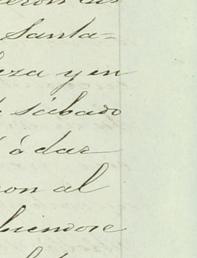 Santa=
eza y en
sábado
á dar
on al
hiendose